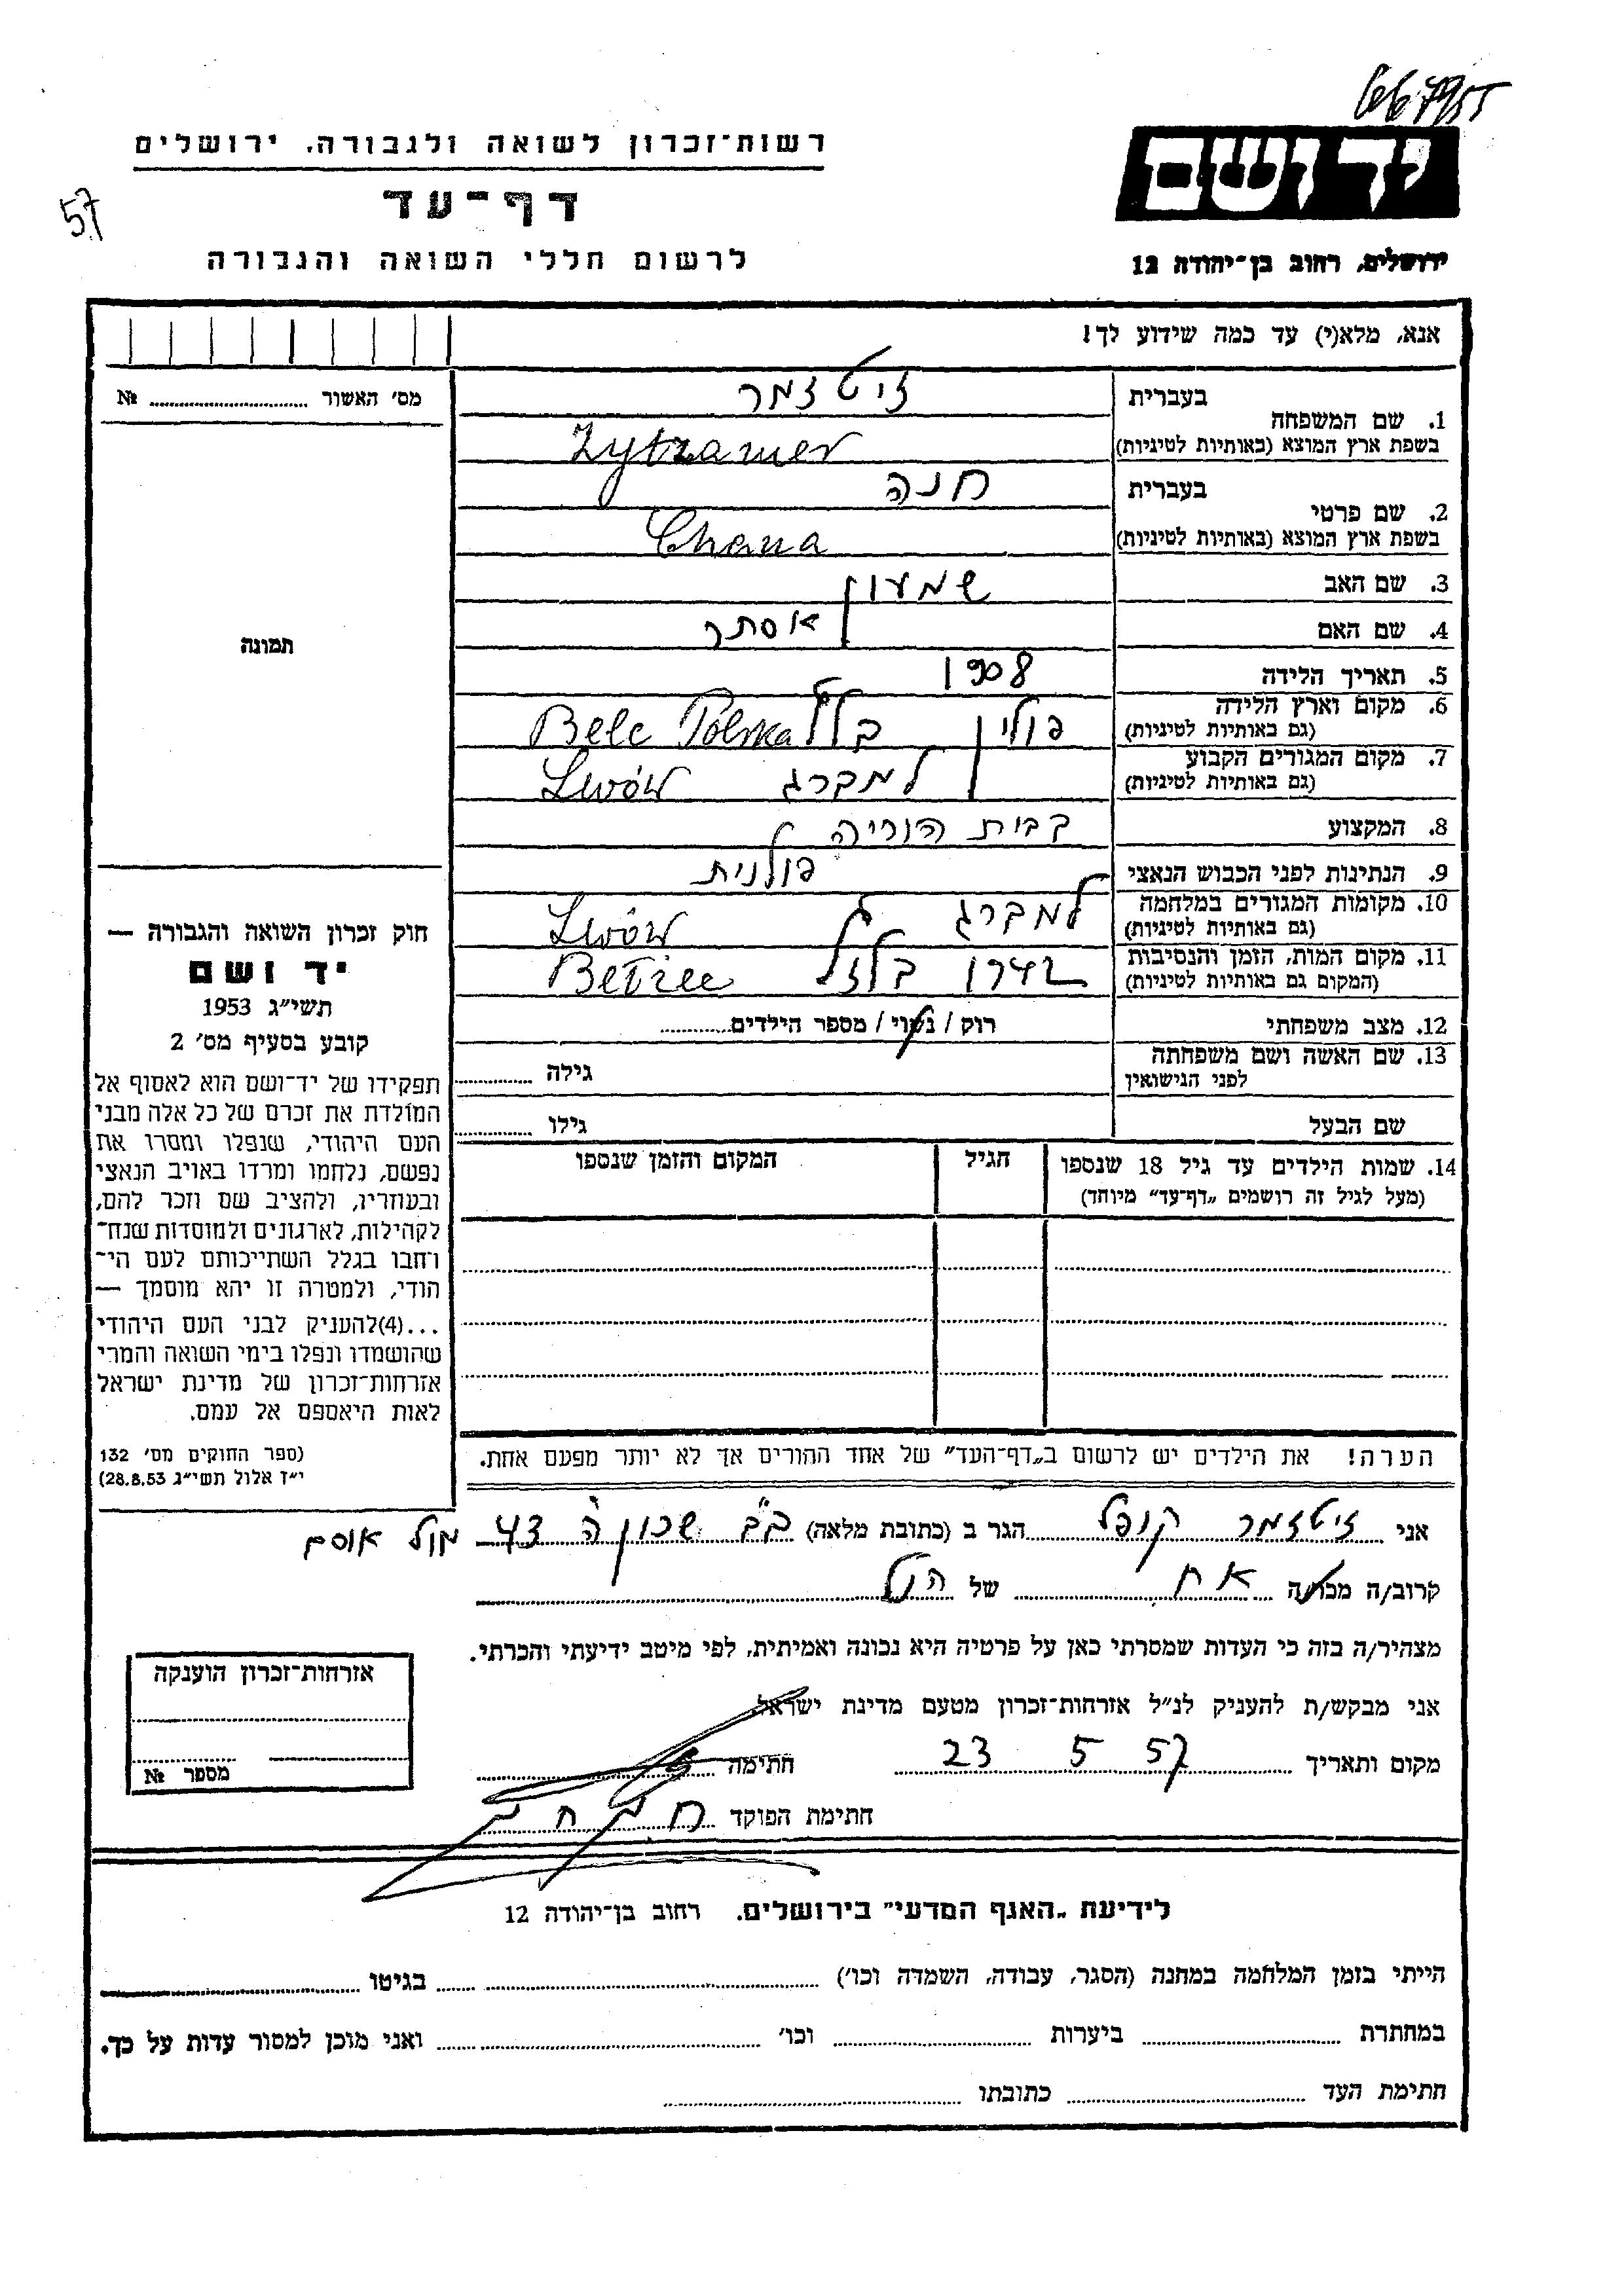 667955
רשות־זכרון לשואה ולגבורה. ירושלים
יד ושם
57
דף־עד
לרשום חללי השואה והגבורה
ירושלים, רחוב בן־יהודה 12
אנא, מלא(י) עד כמה שידוע לך!
מס׳ האשור № 
1. שם המשפחה
בעברית
זיטזמר
בשפת ארץ המוצא (באותיות לטיניות)
Zytzamer
2. שם פרטי
בעברית
חנה
בשפת ארץ המוצא (באותיות לטיניות)
Chana
3. שם האב שמעון
4. שם האם אסתר
5. תאריך הלידה 1908
6. מקום וארץ הלידה
(גם באותיות לטיניות)
פולין בלז Belc Polska
7. מקום המגורים הקבוע
(גם באותיות לטיניות)
למברג Lwów
8. המקצוע בבית הוריה
9. הנתינות לפני הכבוש הנאצי פולנית
10. מקומות המגורים במלחמה
(גם באותיות לטיניות)
למברג Lwów
11. מקום המות, הזמן והנסיבות
(המקום גם באותיות לטיניות)
1942
12. מצב משפחתי רוק / נשוי / מספר הילדים
13. שם האשה ושם משפחתה
לפני הנישואין
גילה
שם הבעל גילו
14. שמות הילדים עד גיל 18 שנספו
(מעל לגיל זה רושמים „דף־עד” מיוחד)
הגיל
המקום והזמן שנספו
תמונה
חוק זכרון השואה והגבורה —
יד ושם
תשי״ג 1953
קובע בסעיף מס׳ 2
תפקידו של יד־ושם הוא לאסוף אל
המולדת את זכרם של כל אלה מבני
העם היהודי, שנפלו ומסרו את
נפשם, נלחמו ומרדו באויב הנאצי
ובעוזריו, ולהציב שם וזכר להם,
לקהילות, לארגונים ולמוסדות שנח־
רחבו בגלל השתייכותם לעם הי־
הודי, ולמטרה זו יהא מוסמך —
...(4)להעניק לבני העם היהודי
שהושמדו ונפלו בימי השואה והמרי
אזרחות־זכרון של מדינת ישראל
לאות היאספם אל עמם.
(ספר החוקים מס׳ 132
י״ז אלול תשי״ג 28.8.53)
הערה! את הילדים יש לרשום ב„דף־העד” של אחד ההורים אך לא יותר מפעם אחת.
אני זיטזמר קופל הגר ב (כתובת מלאה) ב״ב שכון ה׳ 43 מול אוסם
קרוב/ה מכר/ה אח של הנ״ל
מצהיר/ה בזה כי העדות שמסרתי כאן על פרטיה היא נכונה ואמיתית, לפי מיטב ידיעתי והכרתי.
אני מבקש/ת להעניק לנ״ל אזרחות־זכרון מטעם מדינת ישראל
מקום ותאריך 23 5 57 חתימה
חתימת הפוקד
אזרחות־זכרון הוענקה
מספר №
לידיעת „האגף המדעי” בירושלים. רחוב בן־יהודה 12
הייתי בזמן המלחמה במחנה (הסגר, עבודה, השמדה וכו׳) בגיטו
במחתרת ביערות וכו׳ ואני מוכן למסור עדות על כך.
חתימת העד כתובתו